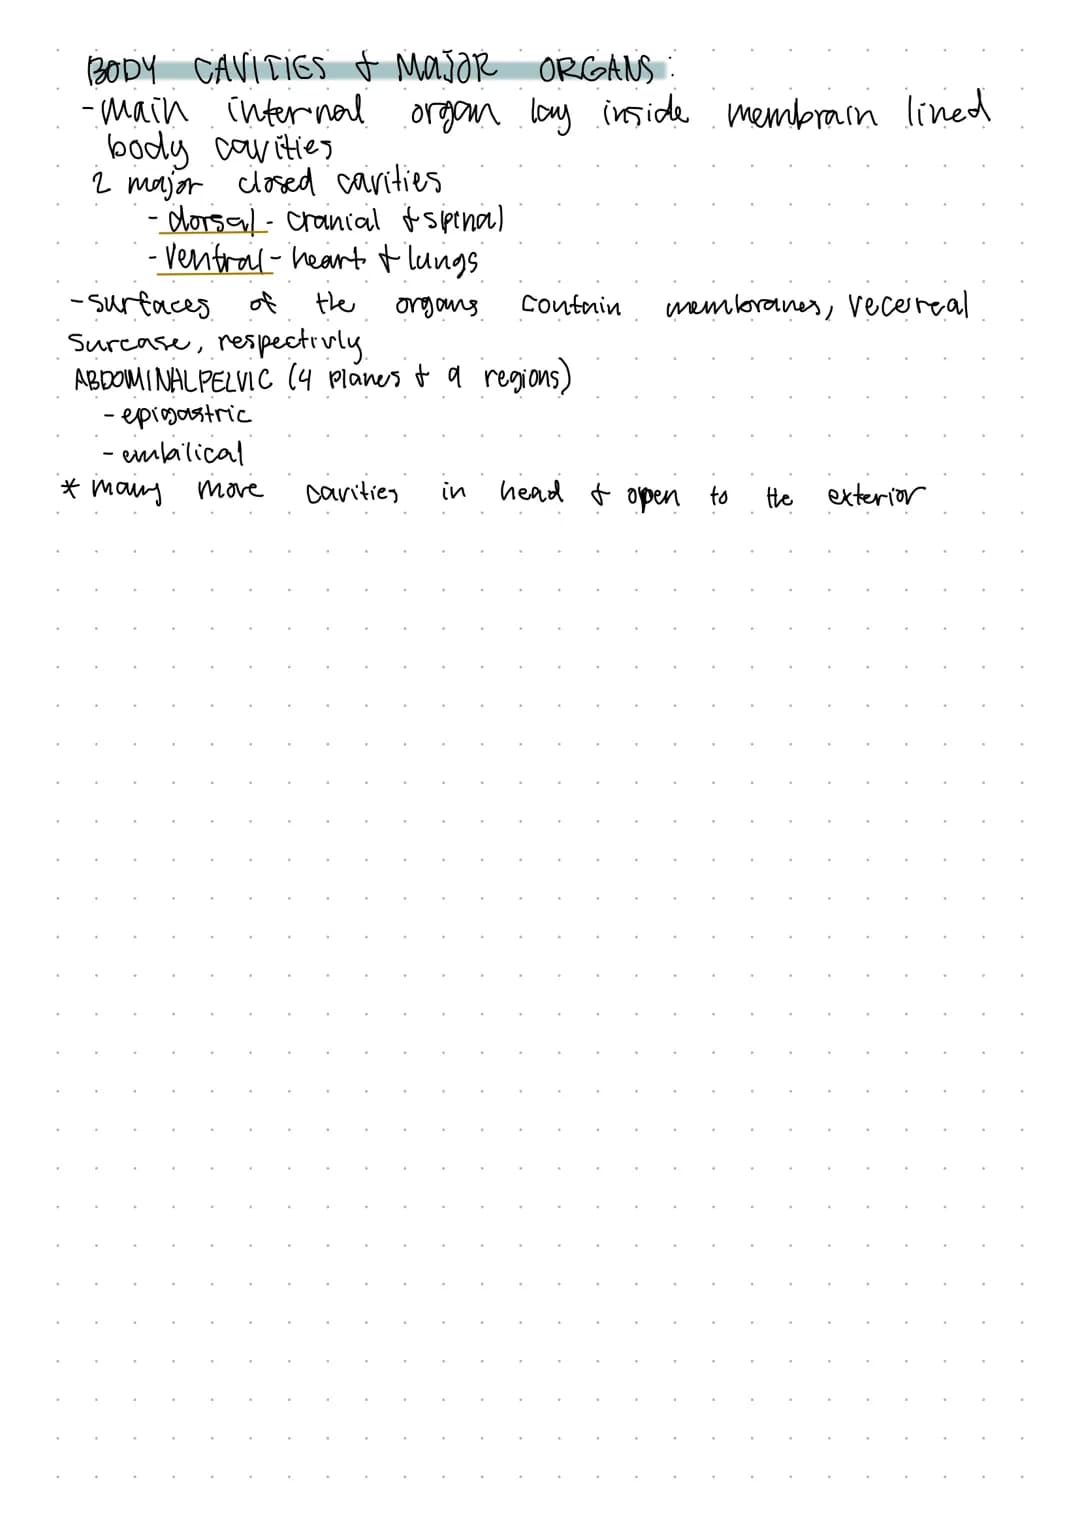 BODY CAVITIES & MAJOR ORGANS:
- main internal organ lay inside membrain lined
body cavities
2 major closed cavities
- dorsal - cranial & spinal
- ventral - heart & lungs
- surfaces of the organs contain membranes, vecereal
surcase, respectivly
ABDOMINALPELVIC (4 planes & 9 regions)
- epigastric
- embilical
* many more cavities in head & open to the exterior